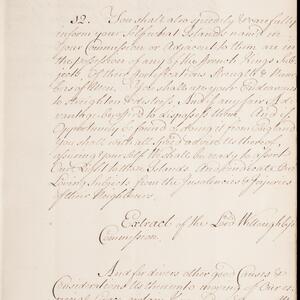 32. You shall also speedily & carefully
inform your self what Islands named in
Your Commission or Adjacent to them are in
the possession of any of the french Kings Sub-
jects, Of their ffortifications Strength & Num-
bers of Men. You shall use your Endeavours
to straighten & distress, And if any fair Ad-
vantage be offerd to dispossess them, And if
Opportunity be found of doing it from England
you shall with all Speed advise Us thereof,
assuring your self We shall be ready to assert
Our Right to those Islands And vindicate Our
Loving Subjects from the Insolencies & Injuries
of their Neighbours.
Extract of the Lord Willoughby's
Commission.
And for divers other good Causes &
Considerations Us thereunto moving of Our es-